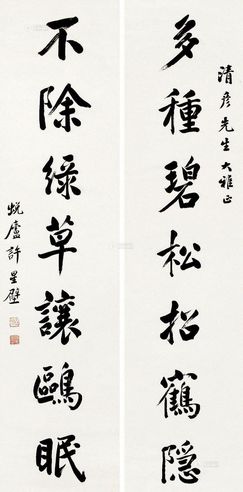 清彦先生大雅正
多種碧松招鶴隐
不除绿草讓鷗眠
悦廬許星璧